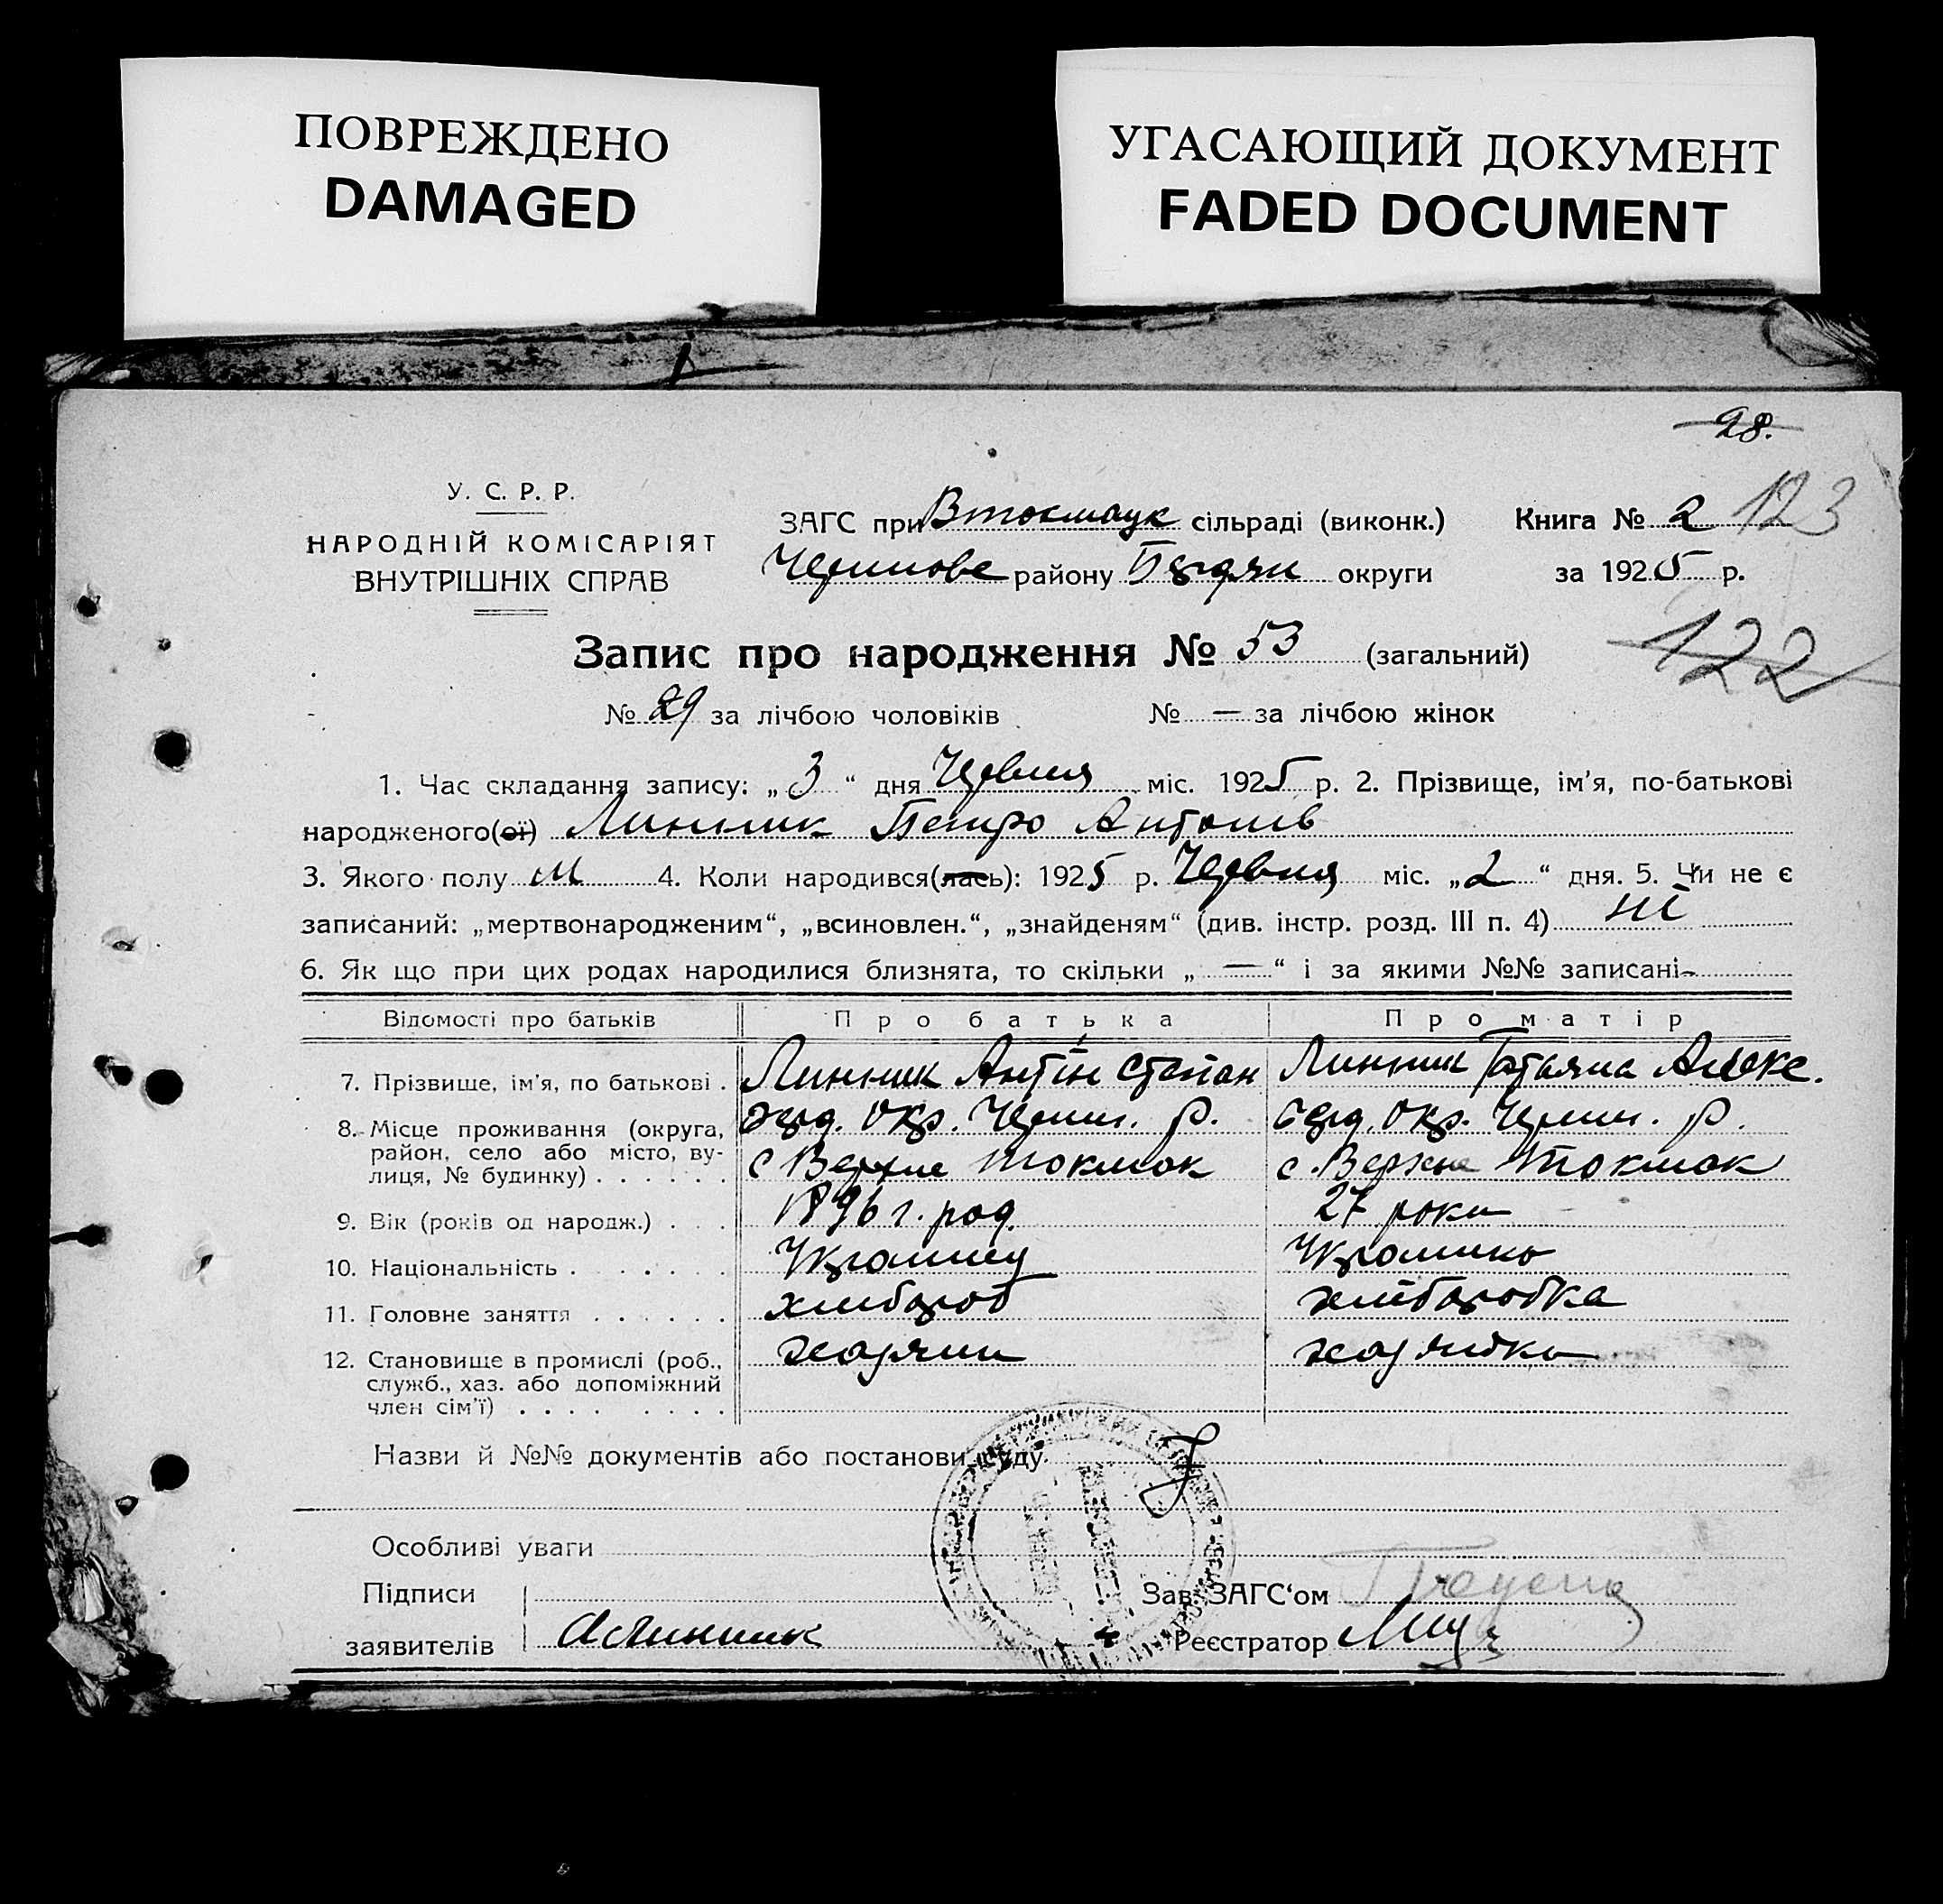 ПОВРЕЖДЕНО
DAMAGED
УГАСАЮЩИЙ ДОКУМЕНТ
FADED DOCUMENT
28.
У. С. Р. Р.
НАРОДНІЙ КОМІСАРІЯТ
ВНУТРІШНІХ СПРАВ
ЗАГС при Втокмацк сільраді (виконк.) Книга № 2 123
району Бердян округи за 1925 р.
Запис про народження № 53 (загальний)
122
№ 29 за лічбою чоловіків № — за лічбою жінок
1. Час складання запису: „3“ дня Червня міс. 1925 р. 2. Прізвище, ім’я, по-батькові
народженого(ої) Линник Петро Антонів
3. Якого полу М 4. Коли народився(лась): 1925 р. Червня міс. „2“ дня. 5. Чи не є
записаний: „мертвонародженим“, „всиновлен.“, „знайденям“ (див. інстр. розд. III п. 4) ні
6. Як що при цих родах народилися близнята, то скільки „—“ і за якими №№ записані –
Відомості про батьків Про батька Про матір
7. Прізвище, ім’я, по батькові . Линник Антін Степан Линник Татьяна Алекс.
8. Місце проживання (округа, Берд. Окр. Черниг. р. Берд. Окр. Черниг. р.
район, село або місто, ву- с Верхне Токмак с. Верхне Токмак
лиця, № будинку) . . . . . .
9. Вік (років од народж.) . . . 1896 г. род. 27 роки
10. Національність . . . . . Украинец Украинка
11. Головне заняття . . . . . . хлибороб хліборобка
12. Становище в промислі (роб., хазяин хазяйка
служб., хаз. або допоміжний
член сім’ї) . . . . . . . .
Назви й №№ документів або постанови суду
Особливі уваги
Підписи Зав. ЗАГС‘ом
заявителів А Линник Реєстратор